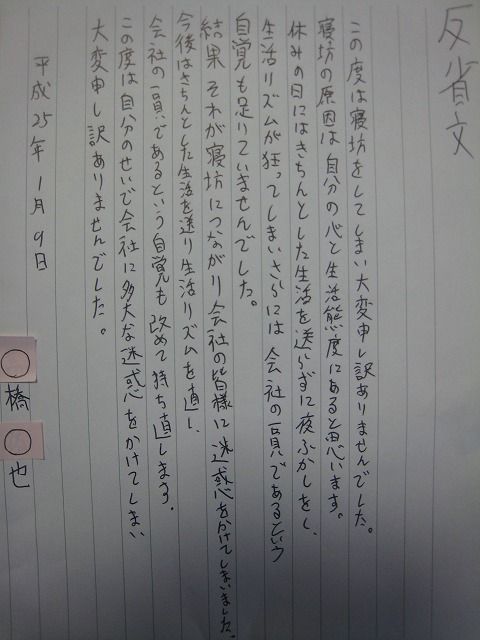 反省文
この度は寝坊をしてしまい大変申し訳ありませんでした。
寝坊の原因は自分の心と生活態度にあると思います。
休みの日にはきちんとした生活を送らずに夜ふかしをし、
生活リズムが狂ってしまいさらには会社の一員であるという
自覚も足りていませんでした。
結果それが寝坊につながり会社の皆様に迷惑をかけてしまいました。
今後はきちんとした生活を送り生活リズムを直し、
会社の一員であるという自覚も改めて持ち直します。
この度は自分のせいで会社に多大な迷惑をかけてしまい
大変申し訳ありませんでした。
平成25年1月9日
○橋○也